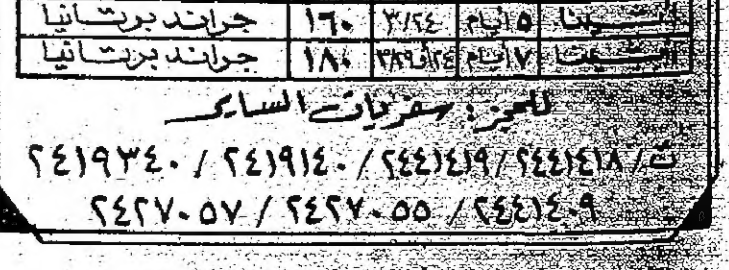 أثينا ٥ أيام ٣/٢٤ ١٦٠ جراند بريتانيا
أثينا ٧ أيام ١٨٠ جراند بريتانيا
للحجز: سفريات الساير
ت/ ٢٤٤١٤١٨ / ٢٤٤١٤١٩ / ٢٤١٩١٤٠ / ٢٤١٩٣٤٠
٢٤٤١٤٠٩ / ٢٤٢٧٠٥٥ / ٢٤٢٧٠٥٧